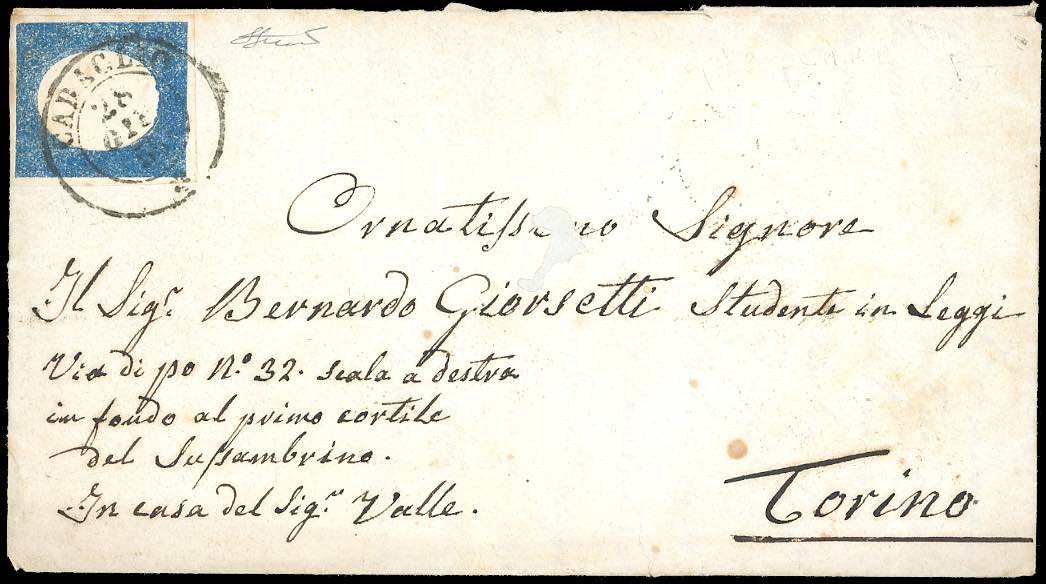 28
Ornatissimo Signore
Il Sigr. Bernardo Giorsetti Studente in Leggi
Via di po No. 32. scala a destra
in fondo al primo cortile
del Sussambrino.
In casa del Sigr. Valle.
Torino